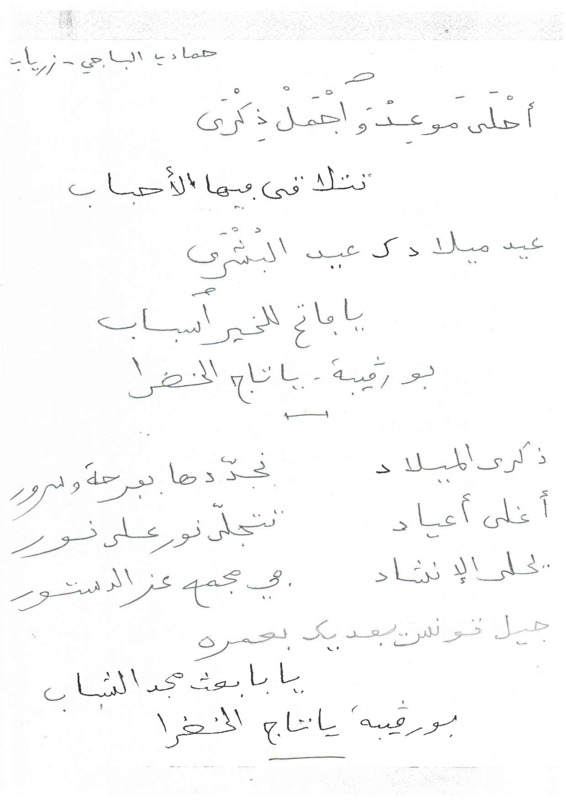 حمادي الباجي - زرياب
أحْلَى مَوعِدْ وَاجْمَلْ ذِكْرَى
تتلاقى فيها الأحباب
عيد ميلادك عيد البُشْرَى
يا فاتح للخير أسباب
بورڤيبة - يا تاج الخضرا
ذكرى الميلاد نجدّدها بفرحة وسرور
أغلى أعياد تتجلّى نور على نور
يحلى الإنشاد في مجمع عز الدستور
جيل تونس يفديك بعمره
يا باعث مجد الشباب
بورڤيبة يا تاج الخضرا